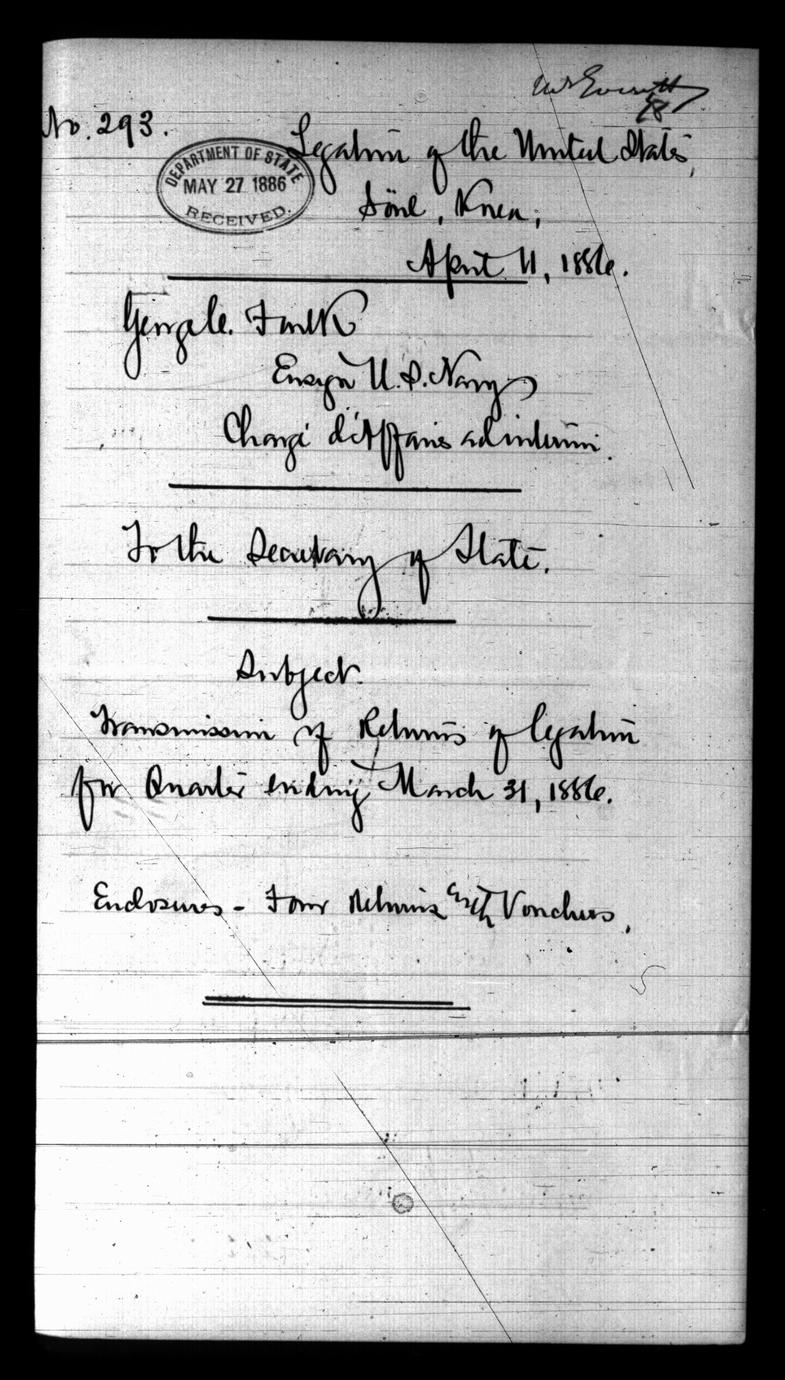 Mr Everett
No. 293.
DEPARTMENT OF STATE
MAY 27 1886
RECEIVED.
Legation of the United States,
Söul, Korea,
April 11, 1886.
George C. Foulk
Ensign U.S. Navy
Chargé d'Affaires ad interim.
To the Secretary of State.
Subject.
Transmission of Returns of Legation
for Quarter ending March 31, 1886.
Enclosures - Four Returns with Vouchers.